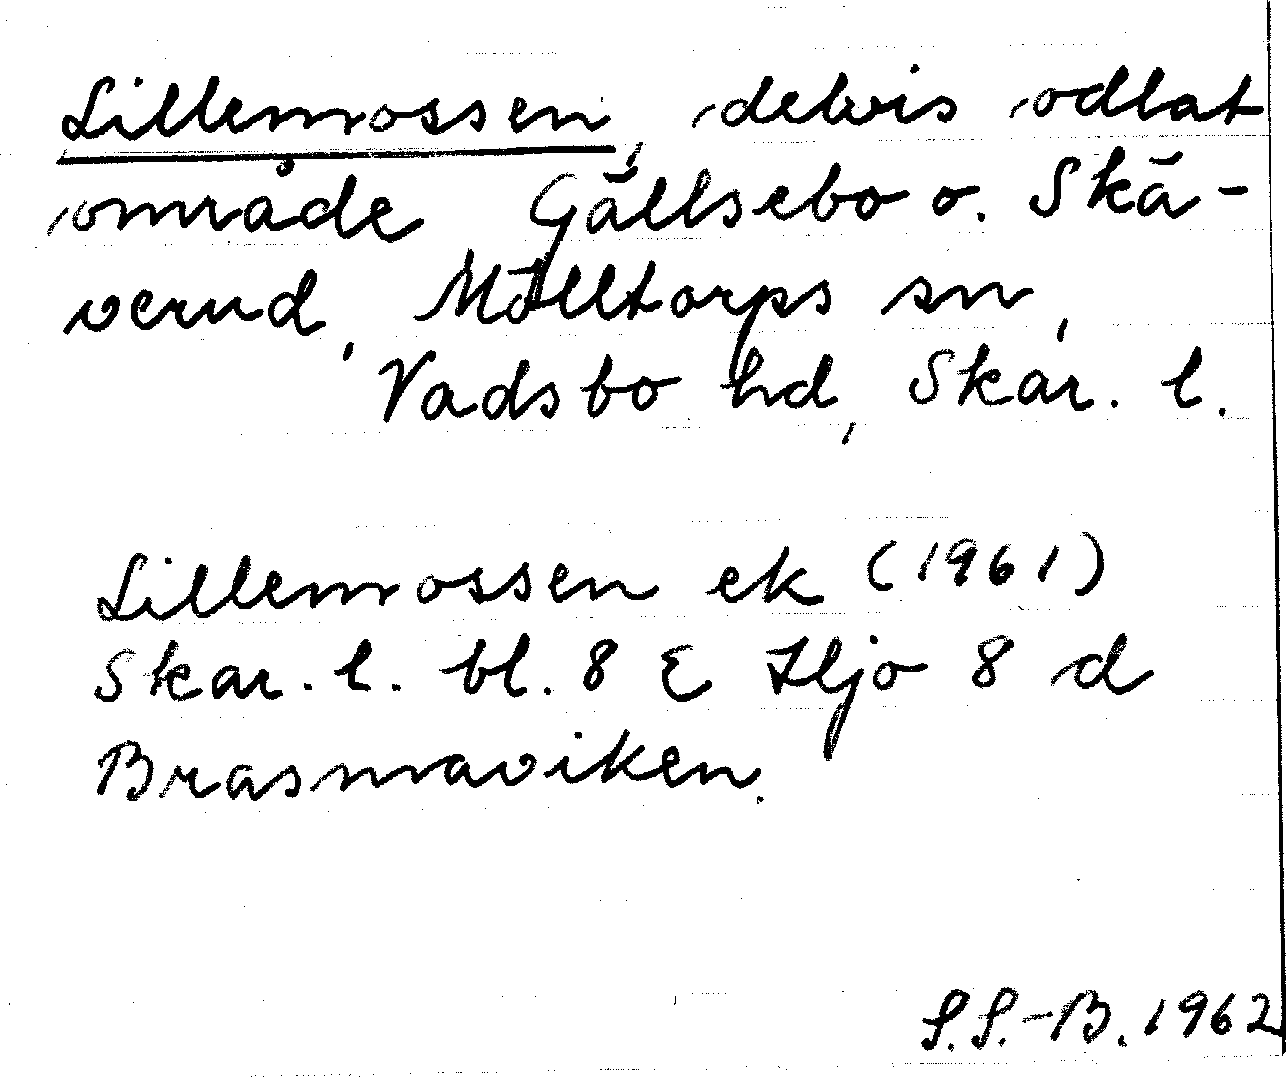 Lillemossen, delvis odlat
område Gällsebo o. Skä-
verud, Mölltorps sn,
Vadsbo hd, Skar. l.
Lillemossen ek (1961)
Skar. l. bl. 8 E Hjo 8 d
Brasmaviken.
S.S.-B. 1962